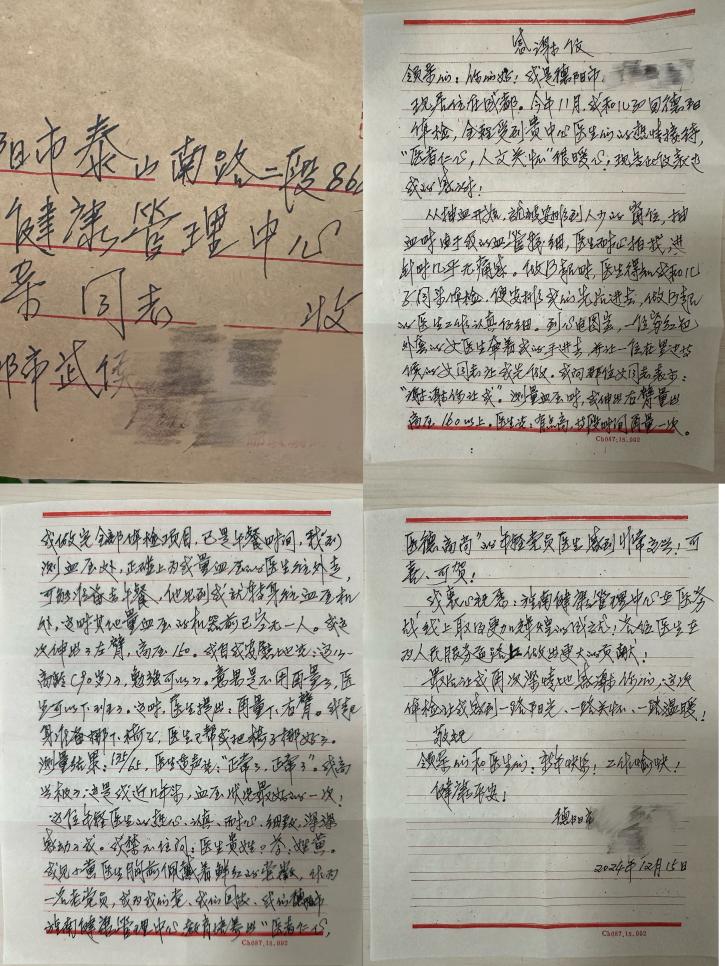 阳市泰山南路二段86
健康管理中心
荣同志 收
都市武侯
感谢信
领导们：你们好！我是德阳市
现居住在成都。今年11月，我和儿子回德阳
体检，全程受到贵中心医生们的热情接待，
“医者仁心，人文关怀”很暖心，现写此信表达
我的感谢！
从抽血开始，就被安排到人少的窗位，抽
血时由于我的血管特细，医生耐心拍找，进
针时几乎无痛感。做B超时，医生得知我和儿
子同来体检，便安排我们先后进去，做B超
的医生工作认真仔细。到心电图室，一位穿红色
外套的女医生牵着我的手进去，并让一位在里边等
候的女同志让我先做。我向那位女同志表示：
“谢谢你让我”。测量血压时，我伸出右臂量出
高压160以上。医生说：有点高，等段时间再量一次。
Ch087.18.002
我做完全部体检项目，已是午餐时间，我们到
测血压处，正碰上为我量血压的医生往外走，
可能准备去午餐，他见到我就转身往血压机
外，这时其他量血压的机器前已空无一人。我这
次伸出了左臂，高压160。我自我安慰地说：这么
高龄（90岁）了，勉强可以了。意思是不用再量了，医
生可以下班了。这时，医生提出：再量下右臂。我起
身准备挪下椅子，医生已帮我把椅子挪好了。
测量结果：135/65，医生连声说：“正常了，正常了”。我高
兴极了，这是我近几年来，血压状况最好的一次！
这位年轻医生的热心、认真、耐心、细致，深深
感动了我。我禁不住问：医生贵姓？答：姓黄。
我见小黄医生胸前佩戴着鲜红的党徽，作为
一名老党员，我为我们党、我们国家、我们德阳市
旌南健康管理中心教育培养出“医者仁心，
Ch087.18.002
医德高尚”的年轻党员医生感到非常高兴！可
喜、可贺！
我衷心祝愿：旌南健康管理中心在医务
战线上取得更加辉煌的成就！各位医生在
为人民服务道路上做出更大的贡献！
最后让我再次深情地感谢你们，这次
体检让我感到一路阳光、一路关怀、一路温暖！
敬祝
领导们和医生们：新年快乐！工作愉快！
健康平安！
德阳市
2024年12月15日
Ch087.18.002